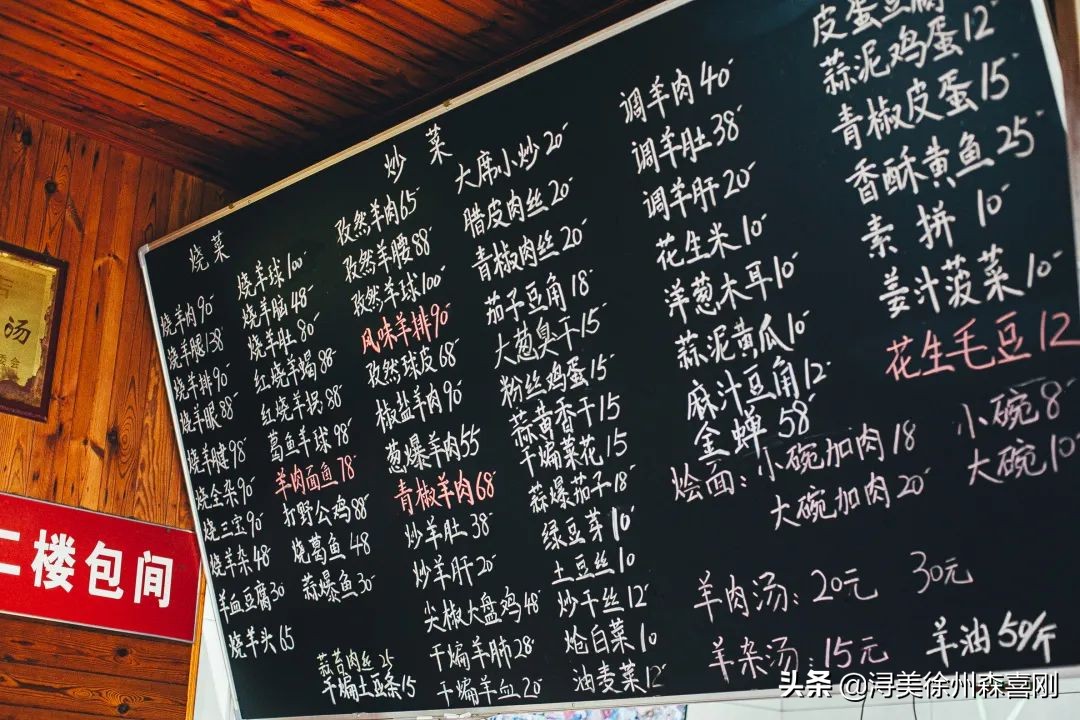 烧菜
烧羊肉90
烧羊腿138
烧羊排90
烧羊眼88
烧羊腱98
烧全杂90
烧三宝90
烧羊杂48
羊血豆腐30
烧羊头65
烧羊球100
烧羊脑48
烧羊肚80
红烧羊蝎88
红烧羊拐88
葛鱼羊球98
羊肉面鱼78
打野公鸡88
烧葛鱼48
蒜爆鱼30
蒜苔肉丝25
干煸土豆条15
炒菜
孜然羊肉65
孜然羊腰88
孜然羊球100
风味羊排90
孜然球皮68
椒盐羊肉90
葱爆羊肉55
青椒羊肉68
炒羊肚38
炒羊肝20
尖椒大盘鸡48
干煸羊肺28
干煸羊血20
大席小炒20
腊皮肉丝20
青椒肉丝20
茄子豆角18
大葱臭干15
粉丝鸡蛋15
蒜黄香干15
干煸菜花15
蒜爆茄子18
绿豆芽10
土豆丝10
炒干丝12
炝白菜10
油麦菜12
调羊肉40
调羊肚38
调羊肝20
花生米10
洋葱木耳10
蒜泥黄瓜10
麻汁豆角12
金蝉58
皮蛋豆腐
蒜泥鸡蛋12
青椒皮蛋15
香酥黄鱼25
素拼10
姜汁菠菜10
花生毛豆12
烩面：小碗加肉18 小碗8
大碗加肉20 大碗10
羊肉汤：20元 30元
羊杂汤：15元 羊油50/斤
汤
二楼包间
头条 @浔美徐州森喜刚